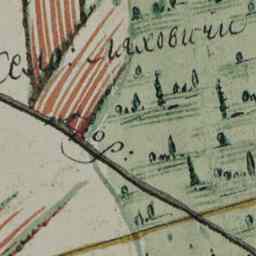 Село: Ляховичи